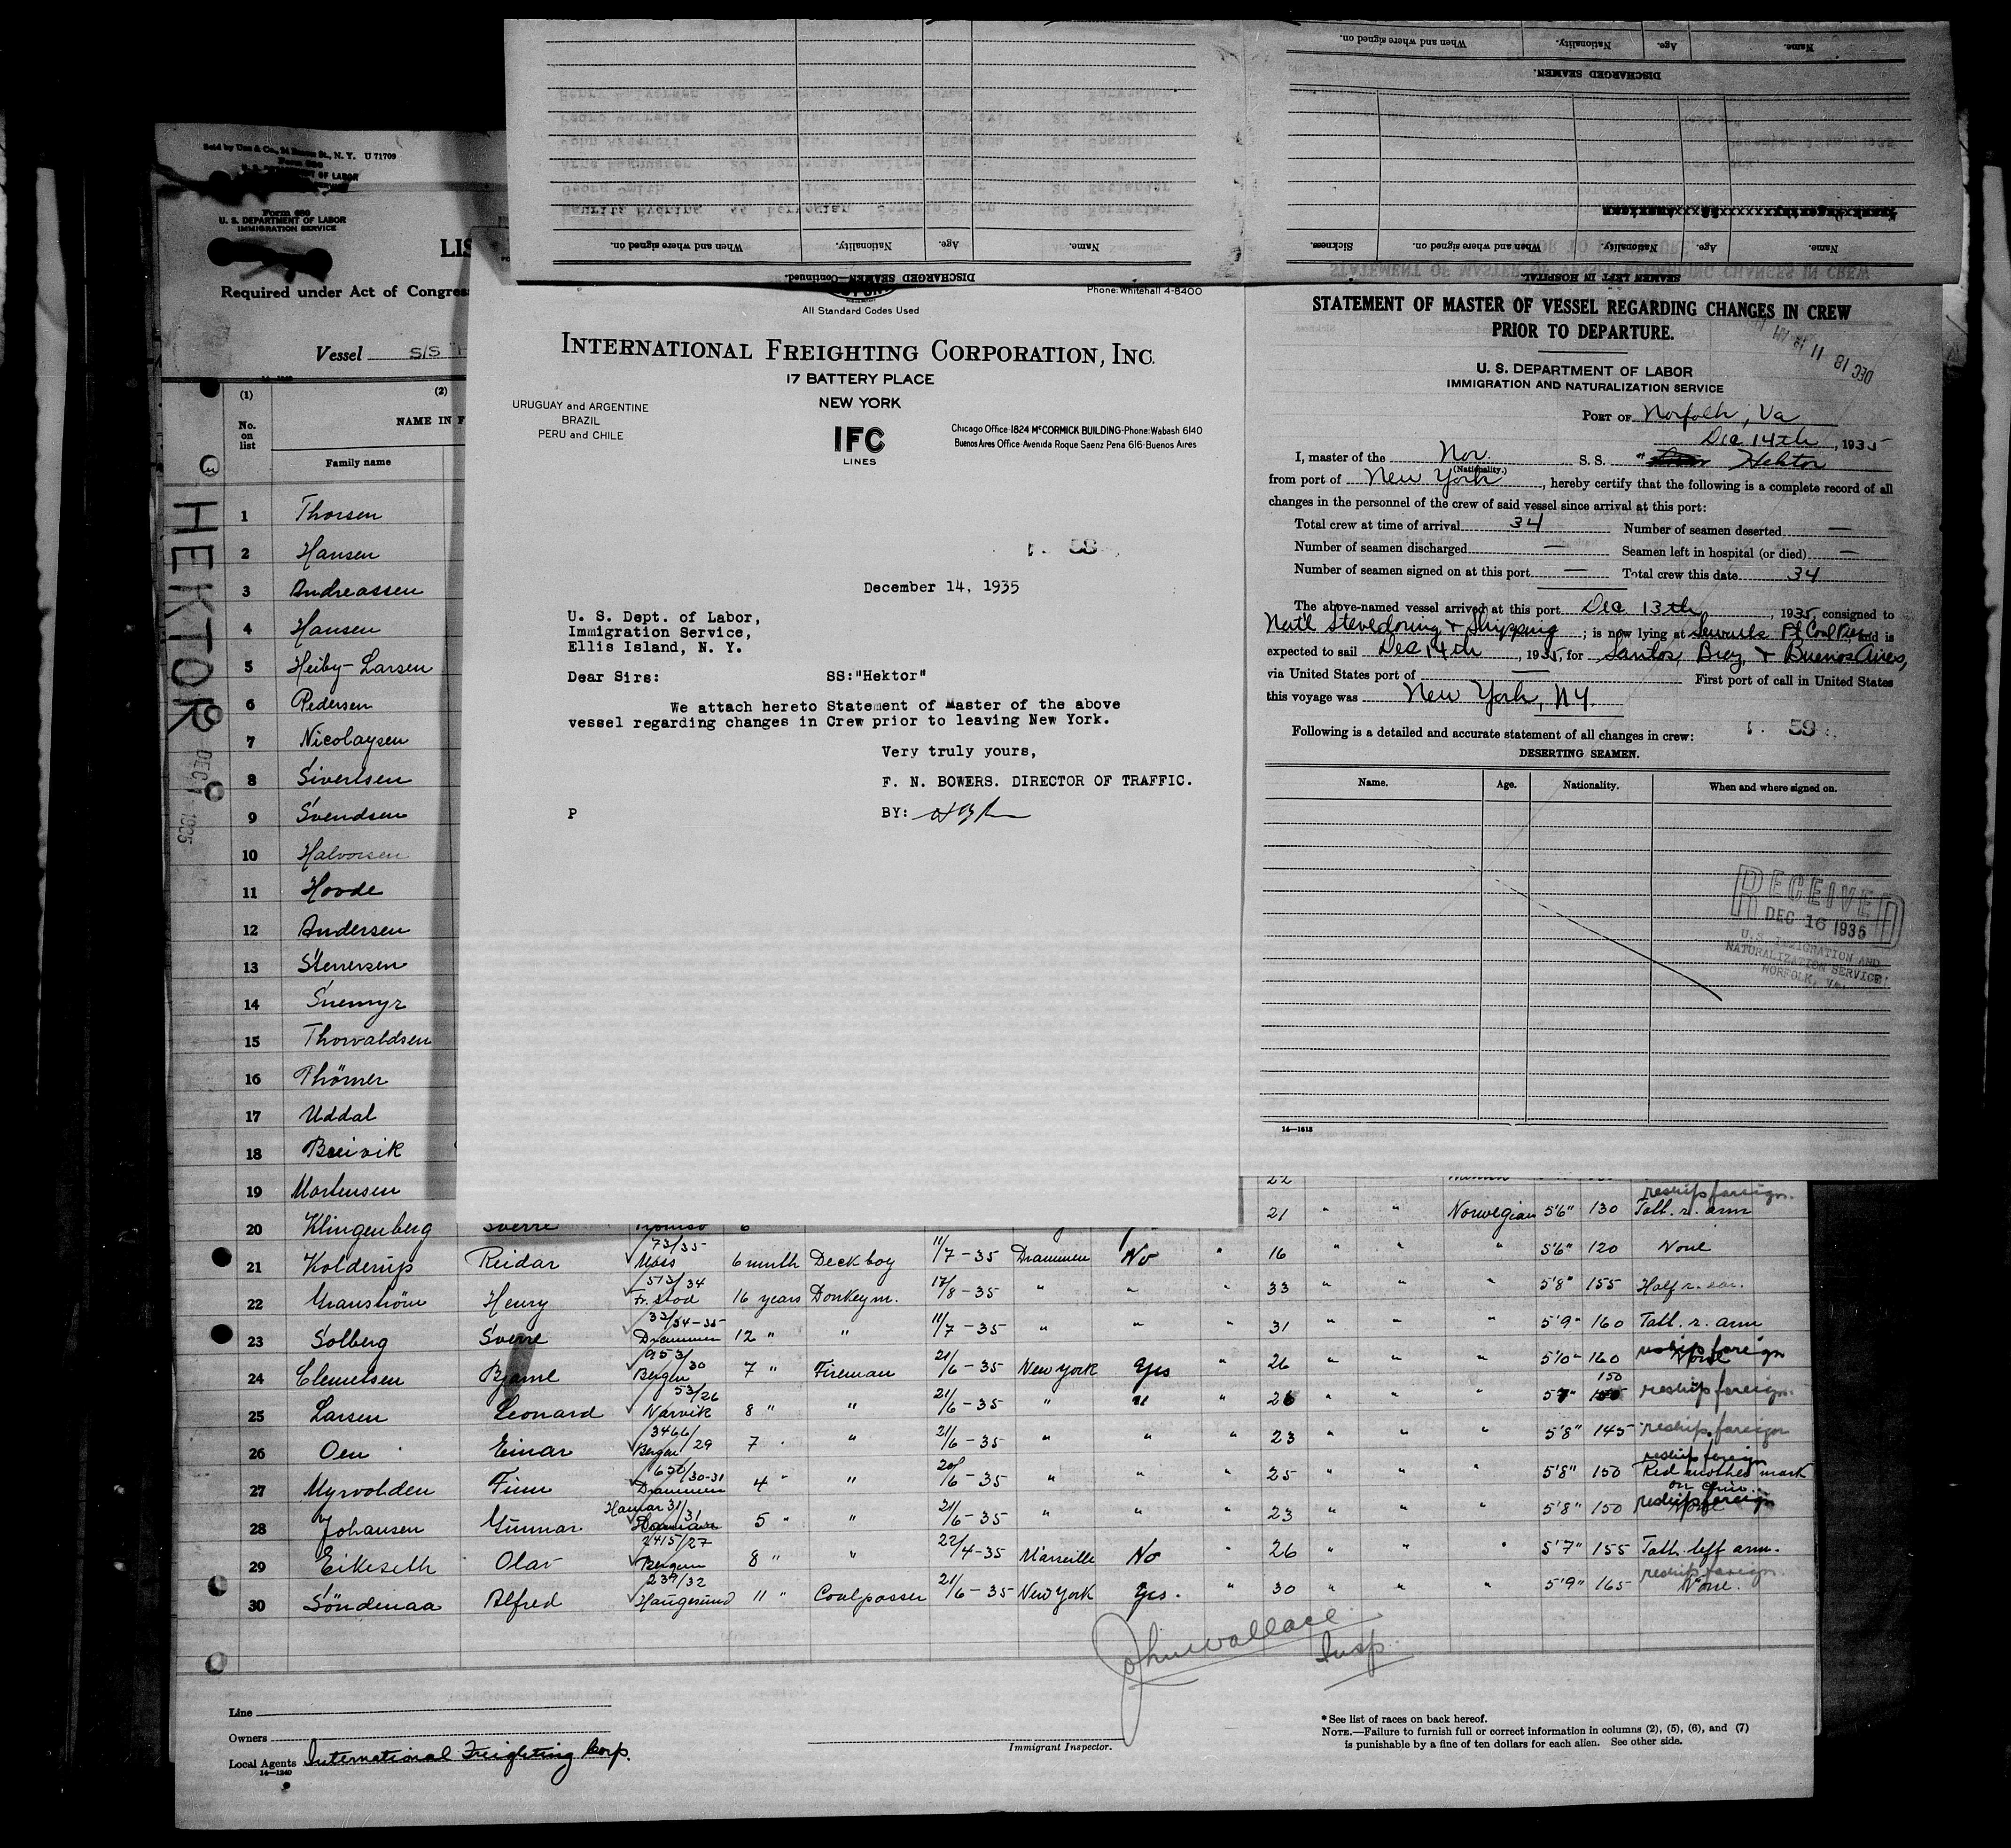 Sold by Unz & Co., 24 Beaver St., N. Y. U 71709
Form 680
U. S. DEPARTMENT OF LABOR
IMMIGRATION SERVICE
LIS
Required under Act of Congres
Vessel S/S
(1) (2)
No. on list
NAME IN F
Family name
HEKTOR
DEC 1935
1 Thorsen
2 Hansen
3 Andreassen
4 Hansen
5 Heiby-Larsen
6 Pedersen
7 Nicolaysen
8 Sivertsen
9 Svendsen
10 Halvorsen
11 Hovde
12 Andersen
13 Stenersen
14 Snemyr
15 Thorvaldsen
16 Thömer
17 Uddal
18 Breivik
19 Mortensen
20 Klingenberg Sverre Tromsö 6 21 " " Norwegian 5'6" 130 Tatt. r. arm reship foreign.
21 Kolderup Reidar 73/35 Moss 6 month Deckboy 11/7-35 Drammen No " 16 " " " 5'6" 120 None
22 Granström Henry 513/34 Fr. stad 16 years Donkeym. 17/8-35 " " 33 " " " 5'8" 155 Half r. ear.
23 Solberg Sverre 33/34-35 Drammen 12 " " 11/7-35 " " " 31 " " " 5'9" 160 Tatt. r. arm
24 Clemetsen Bjarne 953/30 Bergen 7 " Fireman 21/6-35 New York Yes " 26 " " " 5'10" 160 None reship foreign
25 Larsen Leonard 53/26 Narvik 8 " " 21/6-35 " " " 26 " " " 5'7" 150 reship foreign.
26 Oen Einar 3466/29 Bergen 7 " " 21/6-35 " " " 23 " " " 5'8" 145 reship foreign
27 Myrvolden Finn 650/30-31 Drammen 4 " " 20/6-35 " " " 25 " " " 5'8" 150 reship foreign Red mother mark on chin.
28 Johansen Gunnar Hamar 31/31 5 " " 21/6-35 " " " 23 " " " 5'8" 150 reship foreign None
29 Eikeseth Olav 2415/27 Bergen 8 " " 22/4-35 Marseille No " 26 " " " 5'7" 155 Tatt. left arm.
30 Söndenaa Alfred 239/32 Haugesund 11 " Coalpasser 21/6-35 New York Yes. " 30 " " " 5'9" 165 reship foreign. None.
John Wallace
Insp.
Line
Owners
Local Agents International Freighting Corp.
14—1240
Immigrant Inspector.
* See list of races on back hereof.
NOTE.—Failure to furnish full or correct information in columns (2), (5), (6), and (7)
is punishable by a fine of ten dollars for each alien. See other side.
DISCHARGED SEAMEN—Continued.
Name. Age. Nationality. When and where signed on.
SEAMEN LEFT IN HOSPITAL
Name. Age. Nationality. When and where signed on. Sickness.
DISCHARGED SEAMEN.
Name. Age. Nationality. When and where signed on.
All Standard Codes Used
Phone: Whitehall 4-8400
INTERNATIONAL FREIGHTING CORPORATION, INC.
17 BATTERY PLACE
NEW YORK
URUGUAY and ARGENTINE
BRAZIL
PERU and CHILE
IFC
LINES
Chicago Office-1824 McCORMICK BUILDING-Phone: Wabash 6140
Buenos Aires Office-Avenida Roque Saenz Pena 616-Buenos Aires
58
December 14, 1935
U. S. Dept. of Labor,
Immigration Service,
Ellis Island, N. Y.
Dear Sirs: SS:"Hektor"
We attach hereto Statement of Master of the above
vessel regarding changes in Crew prior to leaving New York.
Very truly yours,
F. N. BOWERS. DIRECTOR OF TRAFFIC.
P BY:
STATEMENT OF MASTER OF VESSEL REGARDING CHANGES IN CREW
PRIOR TO DEPARTURE.
DEC 18 11 AM
U. S. DEPARTMENT OF LABOR
IMMIGRATION AND NATURALIZATION SERVICE
PORT OF Norfolk, Va
Dec 14th, 1935
I, master of the Nor. S. S. " Hektor
(Nationality.)
from port of New York, hereby certify that the following is a complete record of all
changes in the personnel of the crew of said vessel since arrival at this port:
Total crew at time of arrival 34 Number of seamen deserted —
Number of seamen discharged — Seamen left in hospital (or died) —
Number of seamen signed on at this port — Total crew this date 34
The above-named vessel arrived at this port Dec 13th, 1935, consigned to
Nat'l Stevedoring & Shipping; is now lying at Sewalls Pt Coal Pier, and is
expected to sail Dec 14th, 1935, for Santos, Braz, & Buenos Aires,
via United States port of — First port of call in United States
this voyage was New York, NY.
Following is a detailed and accurate statement of all changes in crew: 59
DESERTING SEAMEN.
Name. Age. Nationality. When and where signed on.
RECEIVED
DEC 16 1935
U.S. IMMIGRATION AND
NATURALIZATION SERVICE
NORFOLK, VA.
14—1613